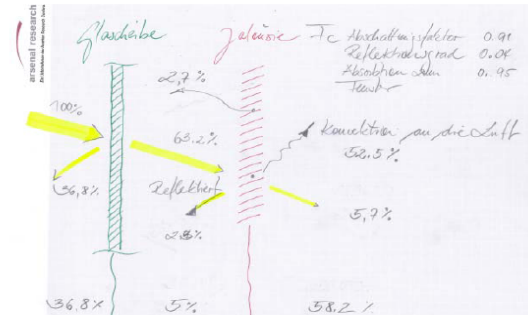 arsenal research
Glasscheibe
Jalousie
Fc Abschattungsfaktor 0.91
Reflektionsgrad 0.04
Absorbtion 0.95
2,7%
100%
63.2%
Konvektion an die Luft
52.5%
36,8%
Reflektiert
5,7%
36.8%
5%
58.2%